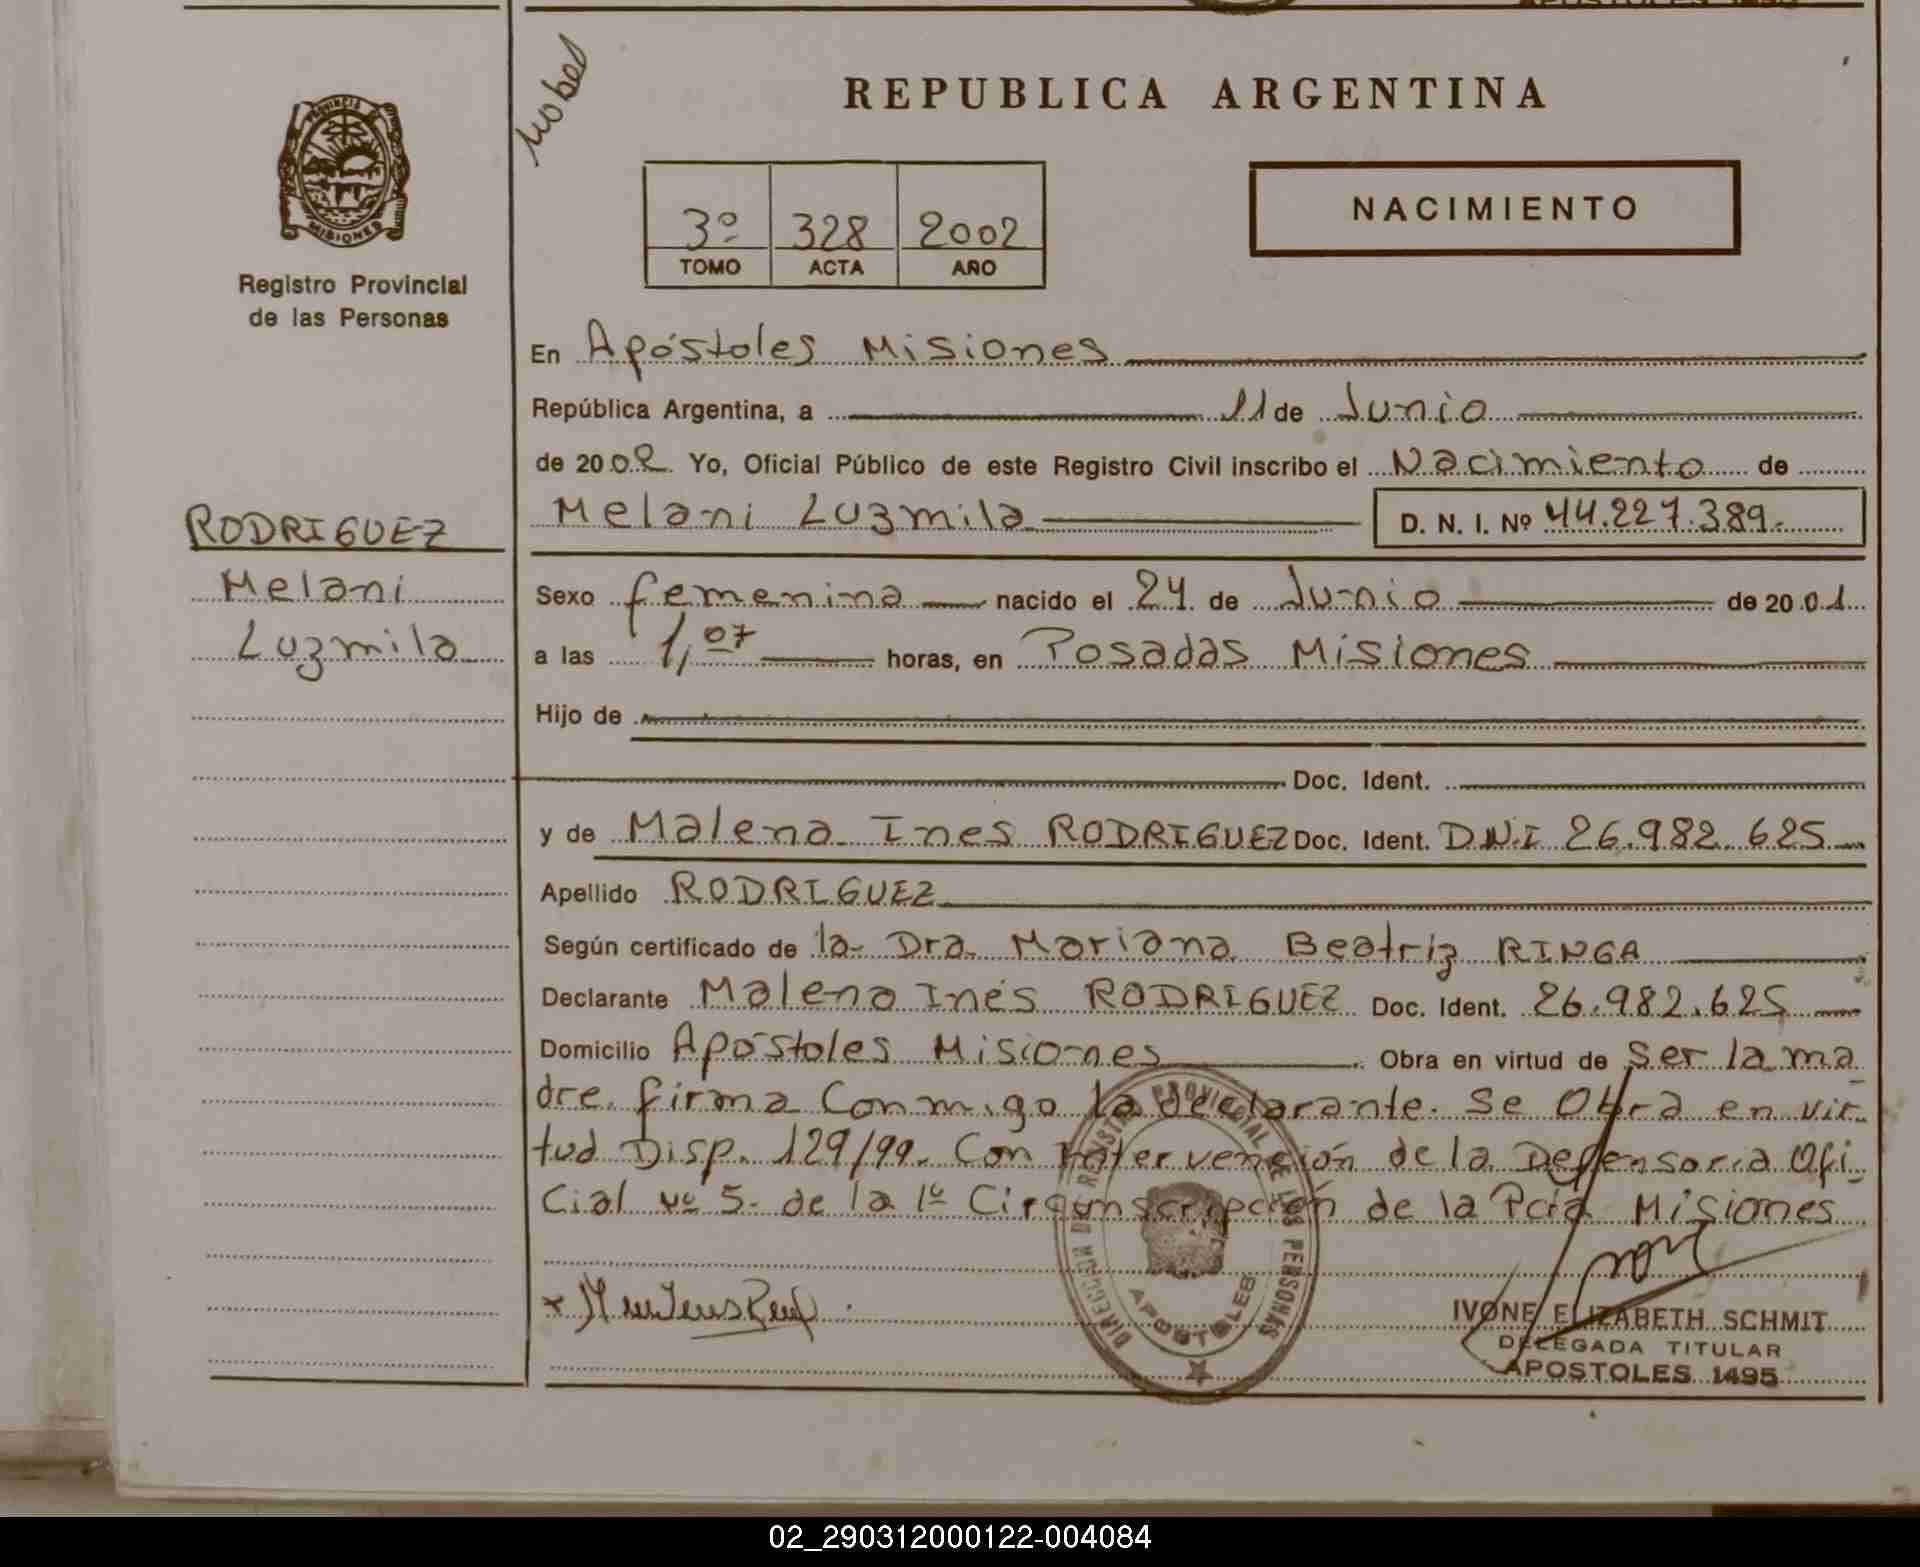 REPUBLICA ARGENTINA
PROVINCIA
MISIONES
Registro Provincial
de las Personas
3º 328 2002
TOMO ACTA AÑO
NACIMIENTO
En Apóstoles Misiones
República Argentina, a 11 de Junio
de 2002 Yo, Oficial Público de este Registro Civil inscribo el Nacimiento de
Melani Luzmila D. N. I. Nº 44.227.389.
RODRIGUEZ
Melani
Luzmila
Sexo femenina nacido el 24 de Junio de 2001
a las 1,07 horas, en Posadas Misiones
Hijo de
Doc. Ident.
y de Malena Ines RODRIGUEZ Doc. Ident. D.N.I 26.982.625
Apellido RODRIGUEZ
Según certificado de la Dra. Mariana Beatriz RINGA
Declarante Malena Inés RODRIGUEZ Doc. Ident. 26.982.625
Domicilio Apóstoles Misiones Obra en virtud de Ser la ma
dre. firma Conmigo la declarante. Se Obra en vir
tud Disp. 129/99. Con Intervención de la Defensoria Ofi
cial Nº 5. de la 1º Circunscripción de la Pcia Misiones
DIRECCION DEL REGISTRO PROVINCIAL DE LAS PERSONAS
APOSTOLES
IVONE ELIZABETH SCHMIT
DELEGADA TITULAR
APOSTOLES 1495
02_290312000122-004084